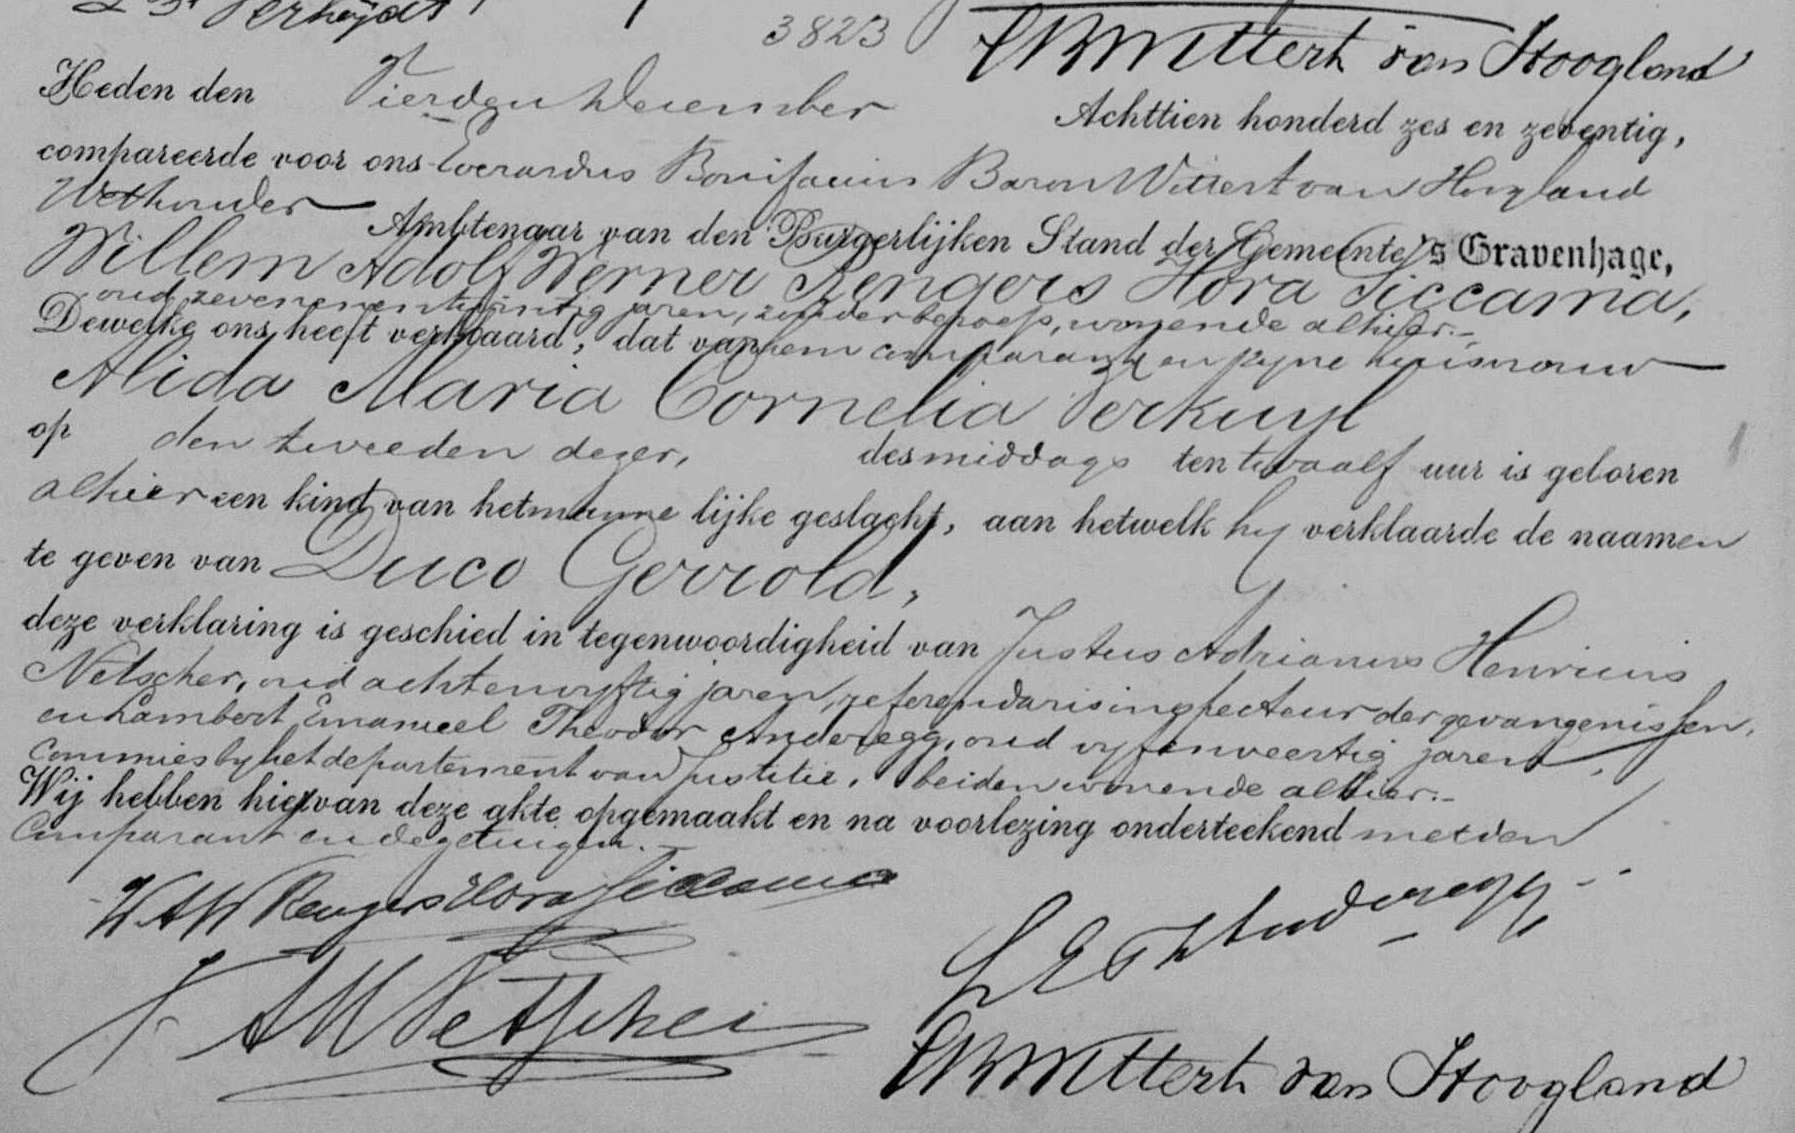 Verheydt
3823
EBWittert van Hoogland
Heden den Vierden December Achttien honderd zes en zeventig,
compareerde voor ons Everardus Bonifacius Baron Wittert van Hoogland
Wethouder Ambtenaar van den Burgerlijken Stand der Gemeente 's Gravenhage,
Willem Adolf Werner Rengers Hora Siccama,
oud zevenenentwintig jaren, zonder beroep, wonende alhier.
Dewelke ons heeft verklaard, dat van hem comparant en zyne huisvrouw
Alida Maria Cornelia Verkuyl
op den tweeden dezer, des middags ten twaalf uur is geboren
alhier een kind van het manne lijke geslacht, aan hetwelk hy verklaarde de naamen
te geven van Duco Gerrold,
deze verklaring is geschied in tegenwoordigheid van Justus Adrianus Henricus
Netscher, oud achtenvyftig jaren, referendaris inspecteur der gevangenissen,
en Lambert Emanueel Theodor Anderegg, oud vyfenveertig jaren,
commies by het departement van Justitie, beiden wonende alhier.
Wij hebben hiervan deze akte opgemaakt en na voorlezing onderteekend met den
Comparant en de getuigen.
WAW Rengers Hora Siccama
L E Th Anderegg
J A H Netscher
EBWittert van Hoogland